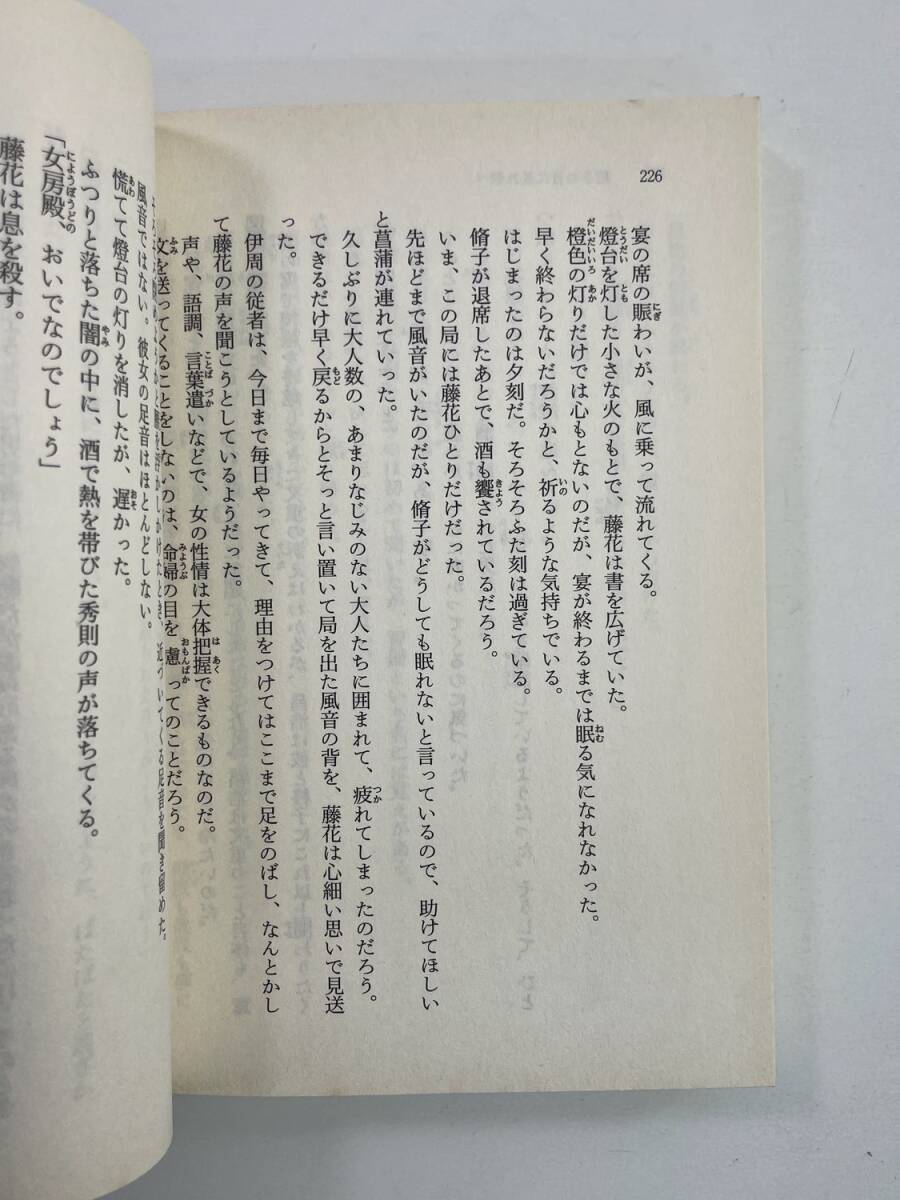 226
宴の席の賑わいが、風に乗って流れてくる。
燈台を灯した小さな火のもとで、藤花は書を広げていた。
橙色の灯りだけでは心もとないのだが、宴が終わるまでは眠る気になれなかった。
早く終わらないだろうかと、祈るような気持ちでいる。
はじまったのは夕刻だ。そろそろふた刻は過ぎている。
脩子が退席したあとで、酒も饗されているだろう。
いま、この局には藤花ひとりだけだった。
先ほどまで風音がいたのだが、脩子がどうしても眠れないと言っているので、助けてほしい
と菖蒲が連れていった。
久しぶりに大人数の、あまりなじみのない大人たちに囲まれて、疲れてしまったのだろう。
できるだけ早く戻るからとそっと言い置いて局を出た風音の背を、藤花は心細い思いで見送
った。
伊周の従者は、今日まで毎日やってきて、理由をつけてはここまで足をのばし、なんとかし
て藤花の声を聞こうとしているようだった。
声や、語調、言葉遣いなどで、女の性情は大体把握できるものなのだ。
文を送ってくることをしないのは、命婦の目を慮ってのことだろう。
近づいてくる足音を聞き留めた。
風音ではない。彼女の足音はほとんどしない。
慌てて燈台の灯りを消したが、遅かった。
ふつりと落ちた闇の中に、酒で熱を帯びた秀則の声が落ちてくる。
「女房殿、おいでなのでしょう」
藤花は息を殺す。